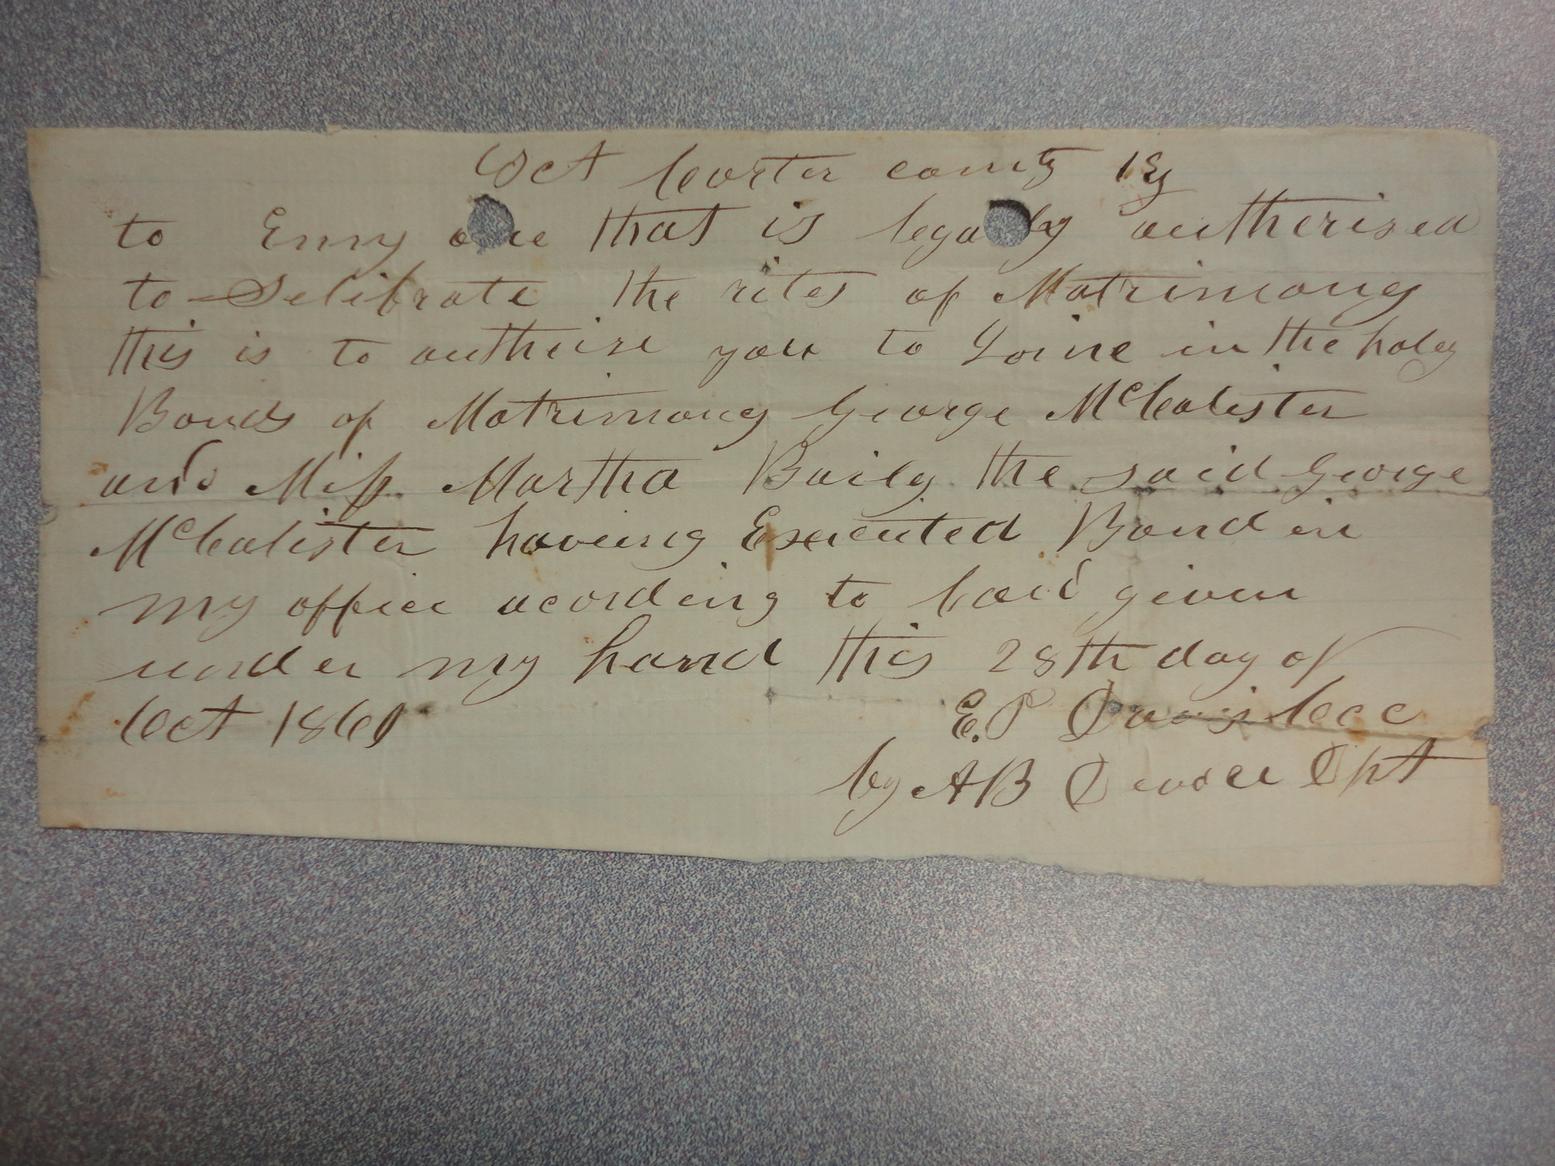 Oct Carter county Ky
to Enny one that is legaly autherised
to Selibrate the rites of Matrimony
this is to autheise you to Joine in the holy
Bonds of Matrimony George McCalister
and Miss Martha Baily the said George
McCalister having Executed Bond in
my office acording to Law given
under my hand this 28th day of
Oct 1861
E. P Davis Ccc
by A B Dpt